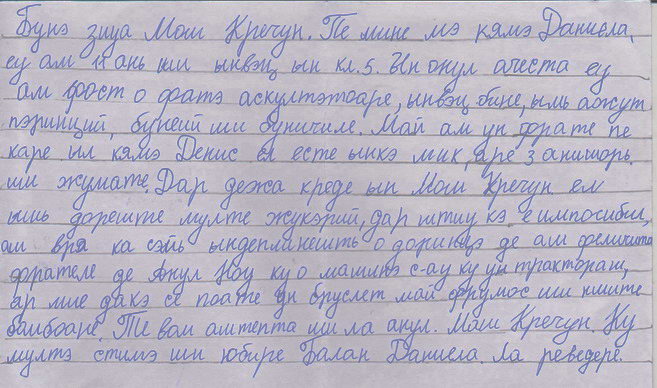 Бунэ зиуа Мош Кречун. Пе мине мэ кямэ Даниела,
еу ам 11 ань ши ынвэц ын кл. 5. Ын онул ачеста еу
ам фост о фатэ аскултэтоаре, ынвэц бине, ымь ажут
пэринций, бунеий ши буничиле. Май ам ун фрате пе
каре ыл кямэ Денис ел есте ынкэ мик, аре 3 анишорь.
ши жумате. Дар дежа креде ын Мош Кречун ел
ышь дореште мулте жукэрий, дар штиу кэ е импосибил,
ам вря ка сэйь ындеплинешть о доринцэ де ам феличита
фрателе де Анул Ноу ку о машинэ с-ау ку ун трактораш,
ар мие дакэ се поате ун бруслет май фрумос ши ниште
бамбоане. Те вом аштепта ши ла анул. Мош Кречун. Ку
мултэ стимэ ши юбире Балан Даниела. Ла реведере.